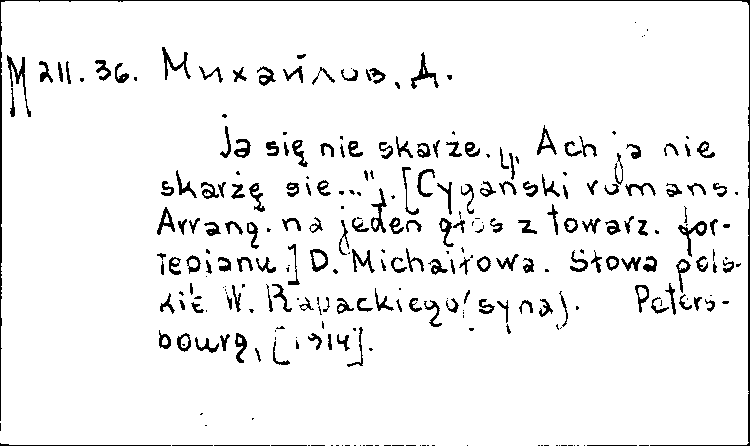 М 211.36. Михайлов, Д.
Ja się nie skarże. „Ach ja nie
skarżę sie..."). [Cygański romans.
Arrang. na jeden głos z towarz. for-
tepianu.] D. Michaiłowa. Słowa pols-
kie W. Rapackiego (syna). Peters-
bourg, [1914].